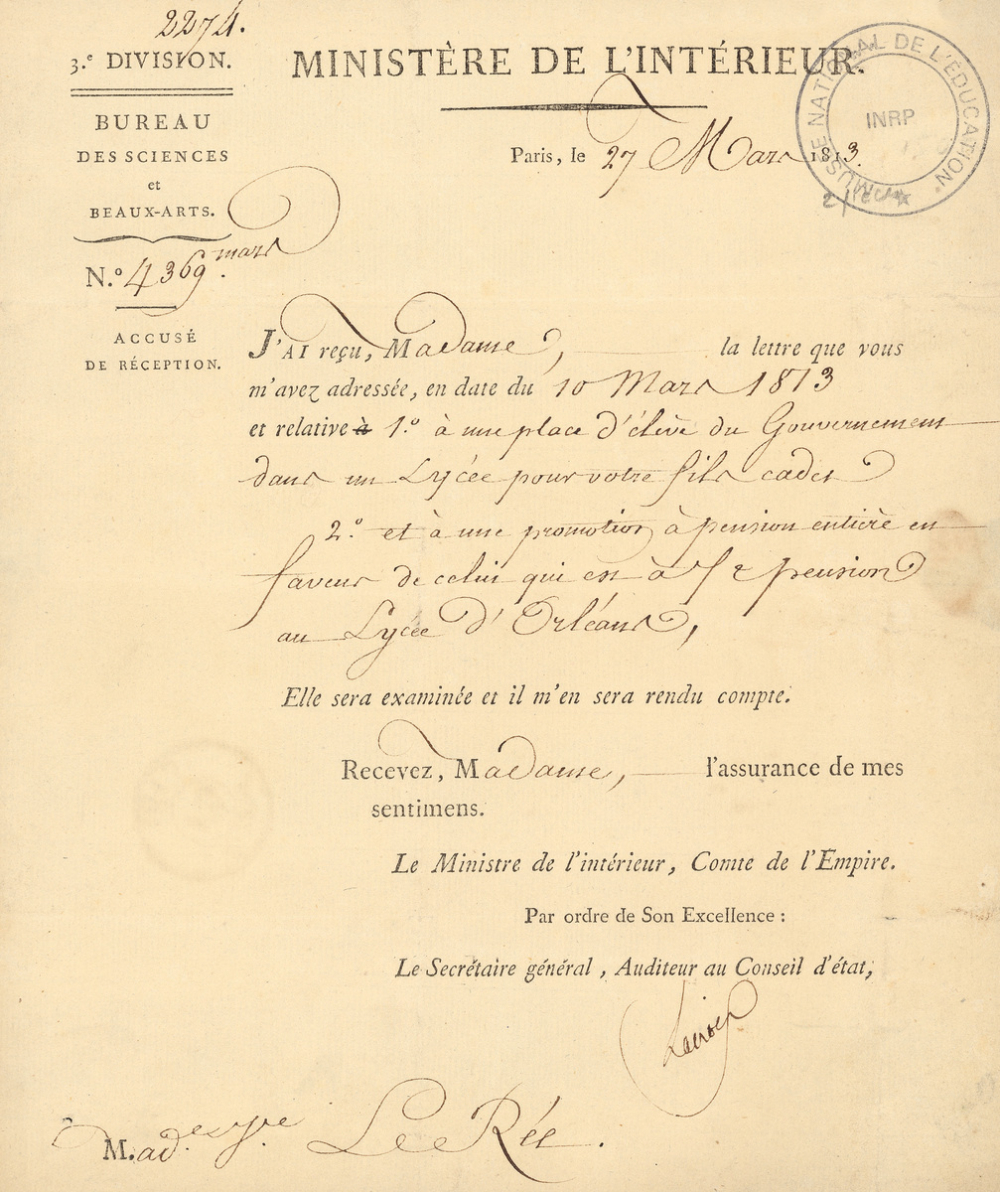 2274.
3.e DIVISION.
BUREAU
DES SCIENCES
et
BEAUX-ARTS.
N.o 4369. mars
ACCUSÉ
DE RÉCEPTION.
MINISTÈRE DE L'INTÉRIEUR.
Paris, le 27 Mars 1813.
MUSÉE NATIONAL DE L'ÉDUCATION
INRP
J'AI reçu, Madame, la lettre que vous
m'avez adressée, en date du 10 Mars 1813
et relative à 1.o à une place d'élève du Gouvernement
dans un Lycée pour votre fils cadet
2.o et à une promotion à pension entière en
faveur de celui qui est à 1/2 pension
au Lycée d'Orléans,
Elle sera examinée et il m'en sera rendu compte.
Recevez, Madame, l'assurance de mes
sentimens.
Le Ministre de l'intérieur, Comte de l'Empire.
Par ordre de Son Excellence :
Le Secrétaire général, Auditeur au Conseil d'état,
M.ad. Le Rée.